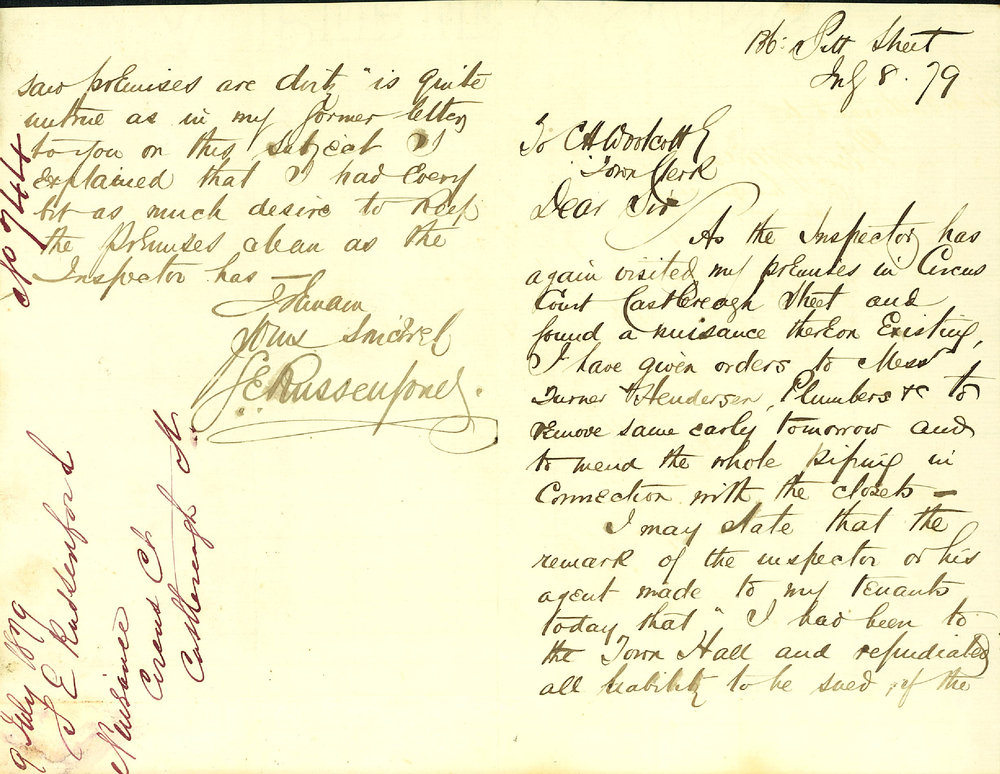 136 Pitt Street
July 8. 79
To C H Woolcott Esq
Town Clerk
Dear Sir
As the Inspector has
again visited my premises in Circus
Court Castlereagh Street and
found a nuisance thereon Existing,
I have given orders to Mess
Turner & Henderson, Plumbers &c to
remove same early tomorrow and
to mend the whole piping in
Connection with the closets —
I may state that the
remark of the inspector or his
agent made to my tenants
today that " I had been to
the Town Hall and repudiated
all liability to be sued, if the
saw premises are dirty " is quite
untrue as in my former letter
to you on this subject I
Explained that I had Every
bit as much desire to keep
the premises clean as the
Inspector has —
I remain
Yours
J E Russenford.
9 July 1879
J E Russenford
Nuisance
Circus Ct
Castlereagh St